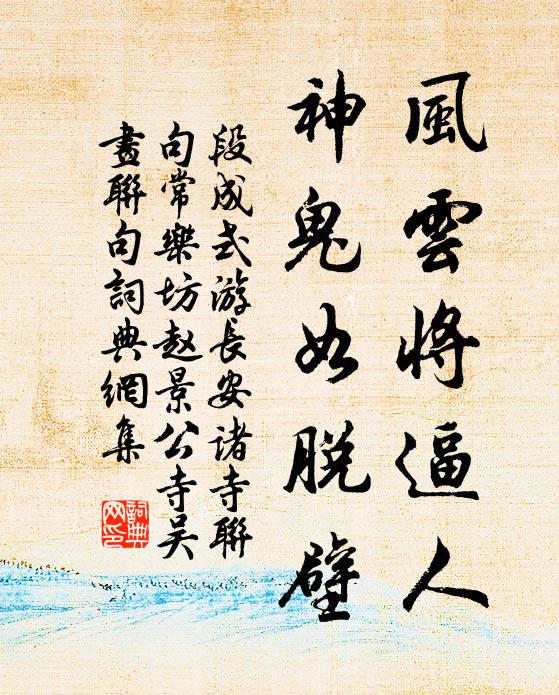 風雲將逼人
神鬼如脫壁
段成式游長安諸寺聯
句常樂坊赵景公寺吴
畫聯句詞典網集
詞典
网印